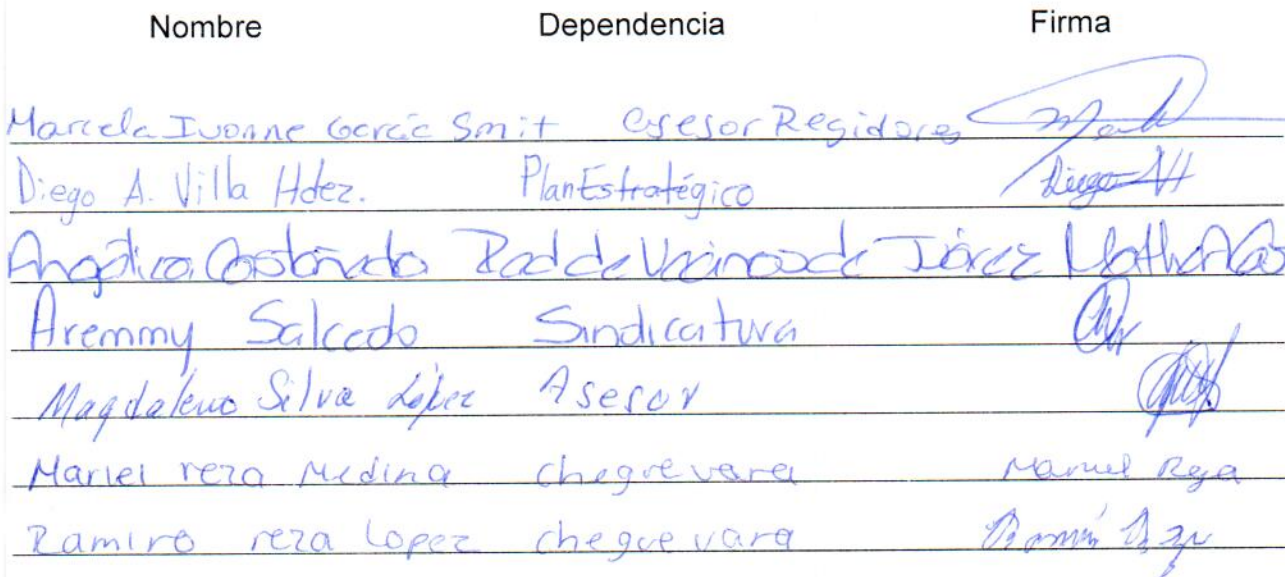 Nombre Dependencia Firma
Marcela Ivonne García Smit Asesor Regidores
Diego A. Villa Hdez. Plan Estratégico Diego VH
Angélica Castañeda Red de Vecinos de Juárez
Aremmy Salcedo Sindicatura
Magdaleno Silva López Asesor
Mariel reza Medina cheguevara Mariel Reza
Ramiro reza Lopez cheguevara